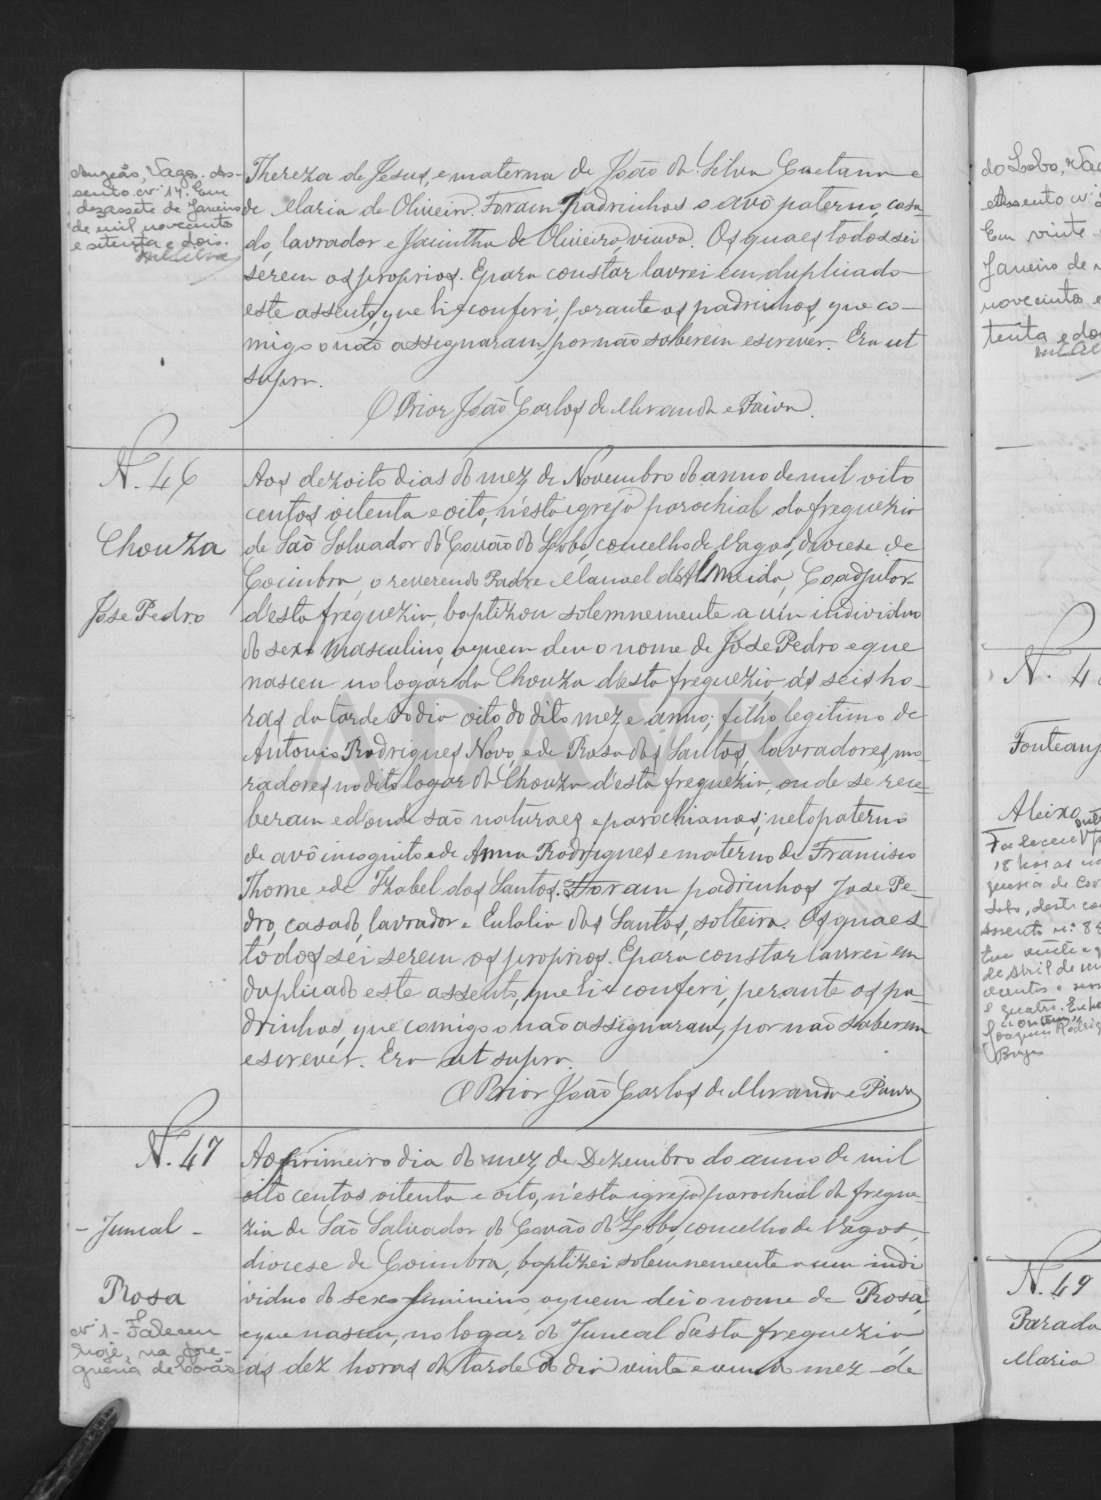 Angeão, Vagos. As-
sento nº 14. Em
dezassete de Janeiro
de mil novecentos
e setenta e dois.
Thereza de Jesus, e materna de João da Silva Caetano e
de Maria de Oliveira. Foram padrinhos o avô paterno, casa
do, lavrador e Jacintha de Oliveira, viuva. Os quaes todos sei
serem os proprios. E para constar lavrei em duplicado
este assento, que li e conferi, perante os padrinhos, que co-
migo o não assignaram, por não saberem escrever. Era ut
supra.
O Prior João Carlos de Miranda e Paiva.
N. 46
Chouza
José Pedro
Aos dezoito dias do mez de Novembro do anno de mil oito
centos oitenta e oito, n'esta igreja parochial da freguezia
de São Salvador do Covão do Lobo, concelho de Vagos, diocese de
Coimbra, o reverendo Padre Manuel d'Almeida, Coadjutor
d'esta freguezia, baptizou solemnemente a um individuo
do sexo masculino, a quem deu o nome de José Pedro e que
nasceu no logar da Chouza d'esta freguezia, ás seis ho-
ras da tarde do dia oito do dito mez e anno; filho legitimo de
Antonio Rodrigues Novo, e de Rosa dos Santos, lavradores, mo-
radores no dito logar da Chouza d'esta freguezia, onde se rece-
beram e d'onde são naturaes e parochianos; neto paterno
de avô incognito e de Anna Rodrigues e materno de Francisco
Thome e de Izabel dos Santos. Foram padrinhos José Pe-
dro, casado, lavrador e Eulalia dos Santos, solteira. Os quaes
todos sei serem os proprios. E para constar lavrei em
duplicado este assento, que li e conferi, perante os pa-
drinhos, que comigo o não assignaram, por não saberem
escrever. Era ut supra.
O Prior João Carlos de Miranda e Paiva
N. 47
- Juncal -
Rosa
nº 1 - Faleceu
hoje, na fre-
guesia de Covão
Ao primeiro dia do mez de Dezembro do anno de mil
oito centos oitenta e oito, n'esta igreja parochial da fregue-
zia de São Salvador do Covão do Lobo, concelho de Vagos,
diocese de Coimbra, baptizei solemnemente a um indi
viduo do sexo feminino, a quem dei o nome de Rosa,
e que nasceu, no logar do Juncal d'esta freguezia
ás dez horas da tarde do dia vinte e um do mez de
do Lobo, Vag
Assento nº
Em vinte
Janeiro de
novecentos e
tenta e do
N. 4
Fonteang
Aleixo
Faleceu
18 horas
guesia de Cov
Lobo, deste co
Assento n.º 8
Em vinte e
de Abril de
e quatro.
Joaquim Rodrig
N. 49
Parada
Maria